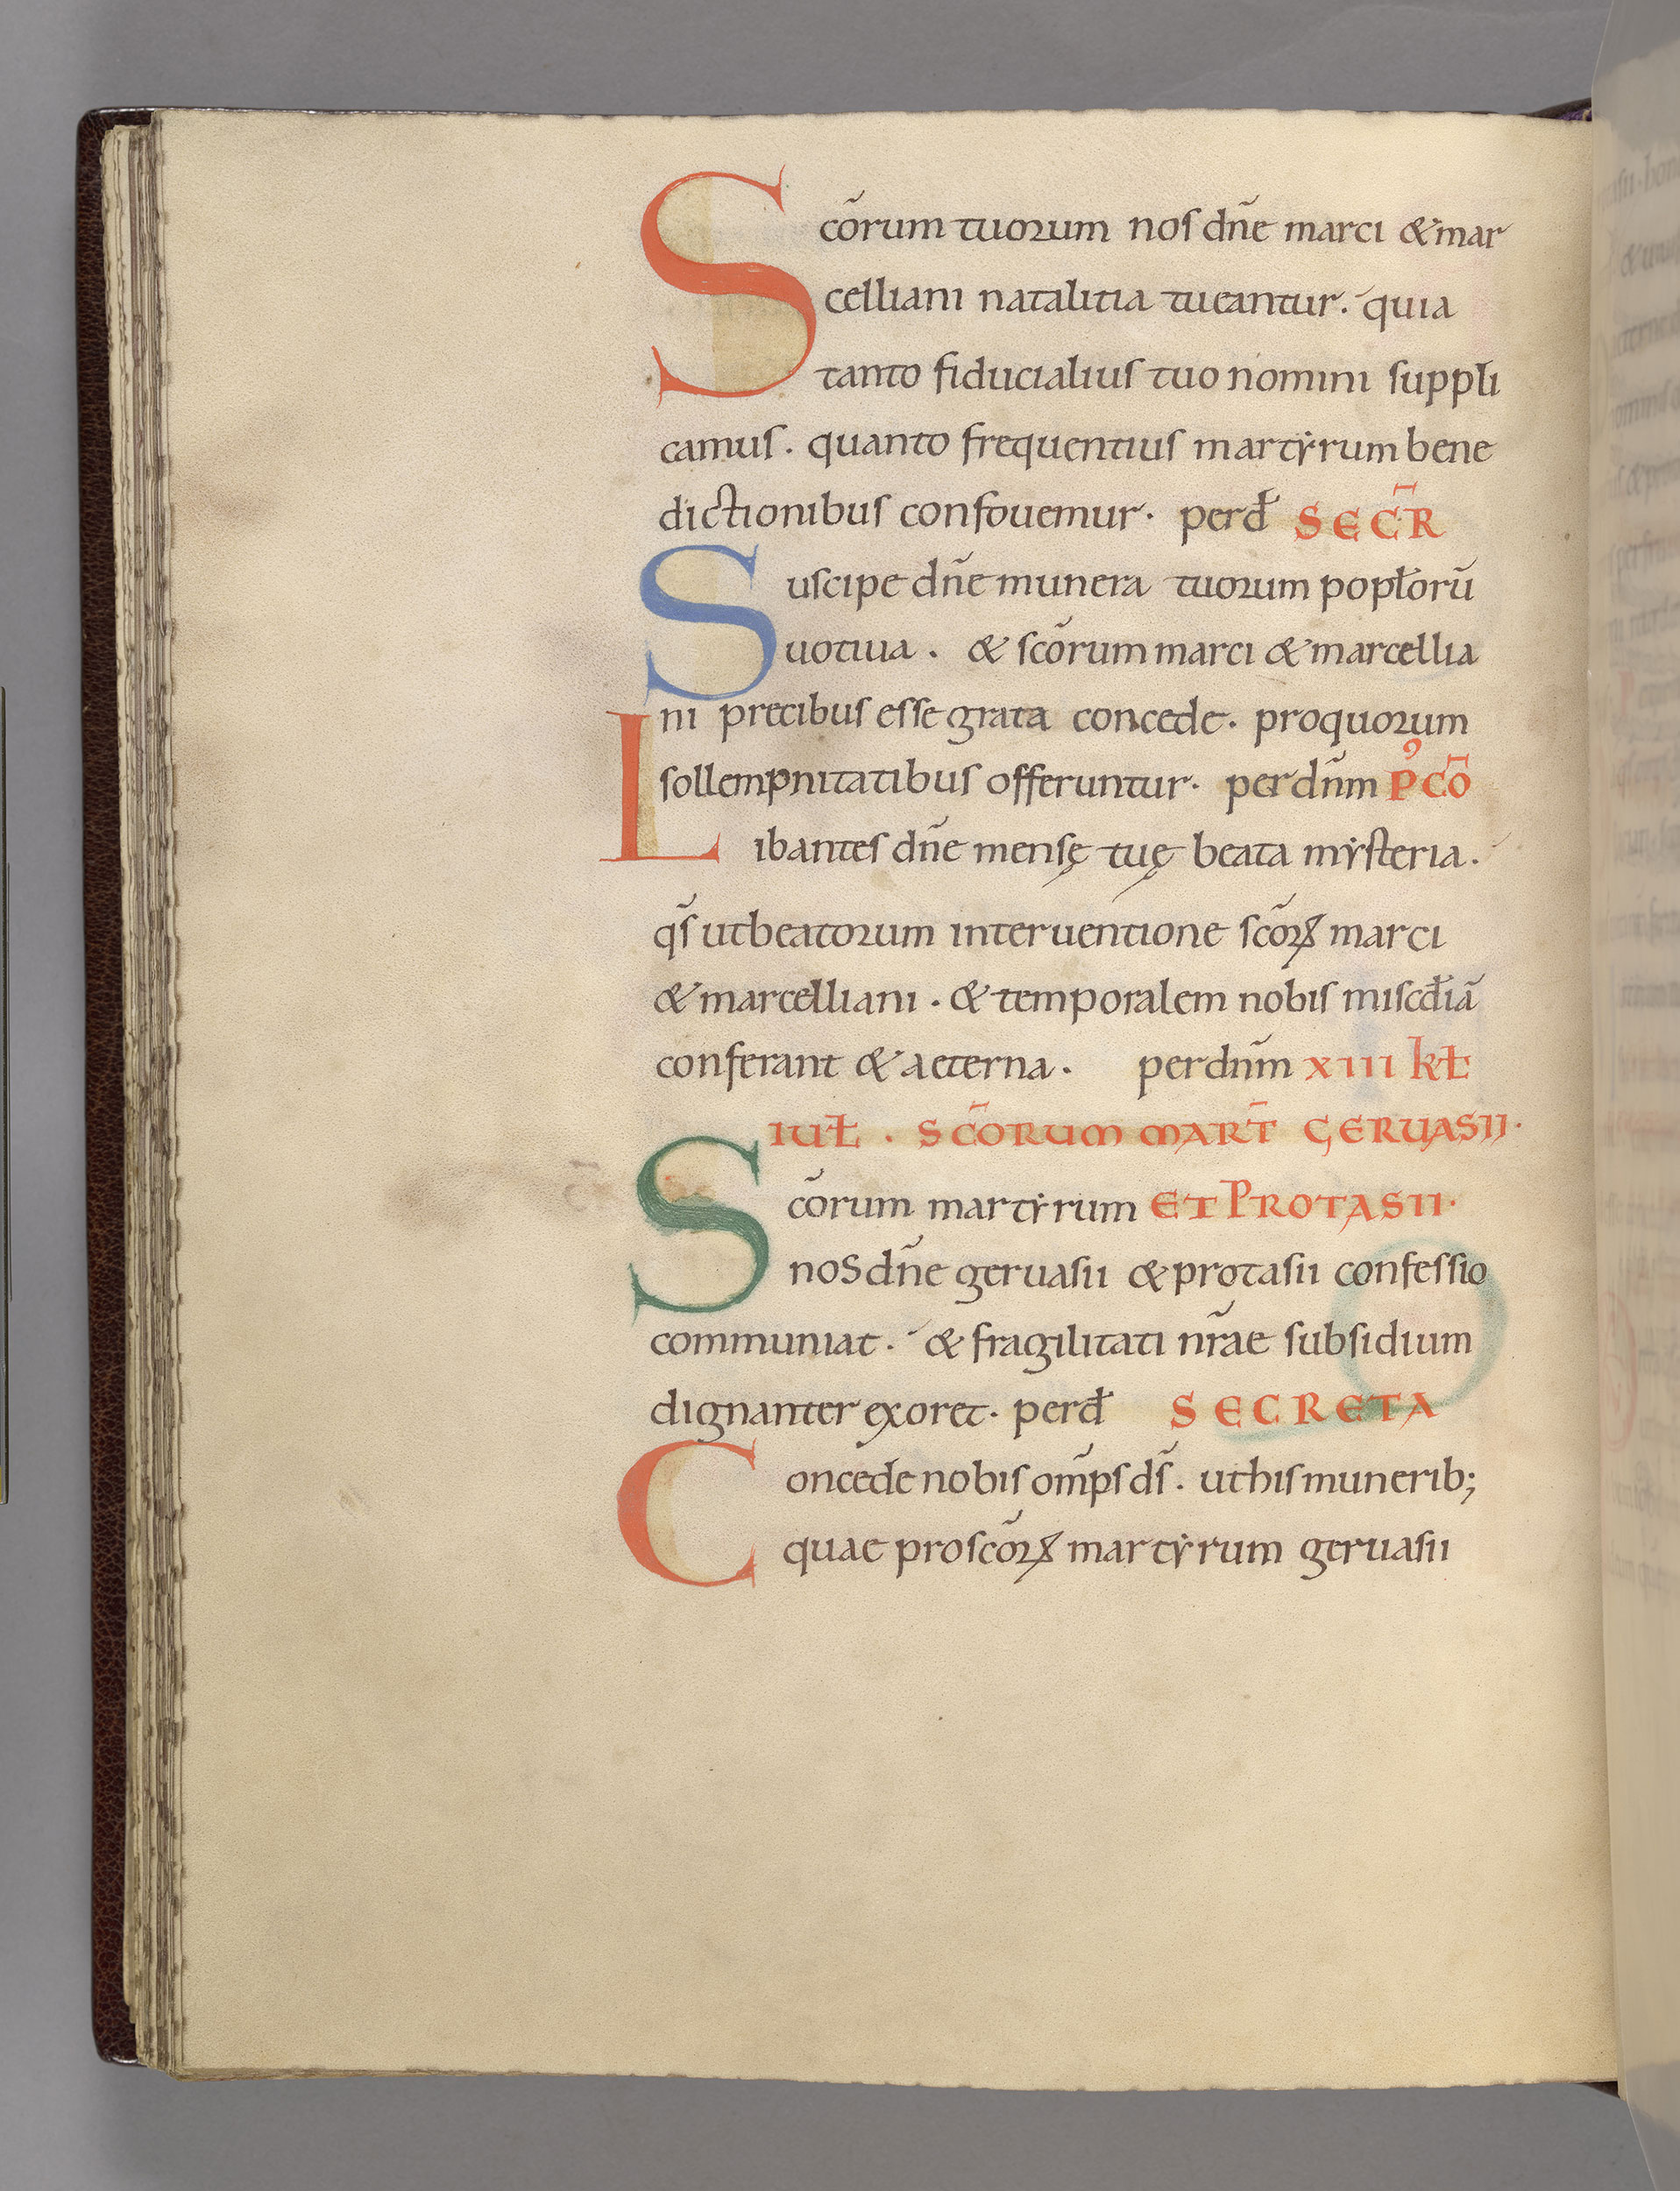 Scōrum tuorum nos dn̄e marci & mar
celliani natalitia tueantur. quia
tanto fiducialius tuo nomini suppli
camus. quanto frequentius martẏrum bene
dictionibus confouemur. perd̄ SEC̄R
Suscipe dn̄e munera tuorum popl̄orū
uotiua. & scōrum marci & marcellia
ni precibus esse grata concede. pro quorum
sollempnitatibus offeruntur. per dnm̄ P᾽ CŌ
Libantes dn̄e mensę tuę beata mẏsteria.
qs̄ ut beatorum interuentione scōrꝝ marci
& marcelliani. & temporalem nobis miscd̄iā
conferant & aeterna. per dnm̄ XIII kł
IUł. SC̄ORUM MART̄ GERUASII.
Scōrum martẏrum ET PROTASII.
nos dn̄e geruasii & protasii confessio
communiat. & fragilitati nr̄ae subsidium
dignanter exoret. perd̄ SECRETA
Concede nobis om̄ps ds̄. ut his munerib;
quae pro scōrꝝ martẏrum geruasii